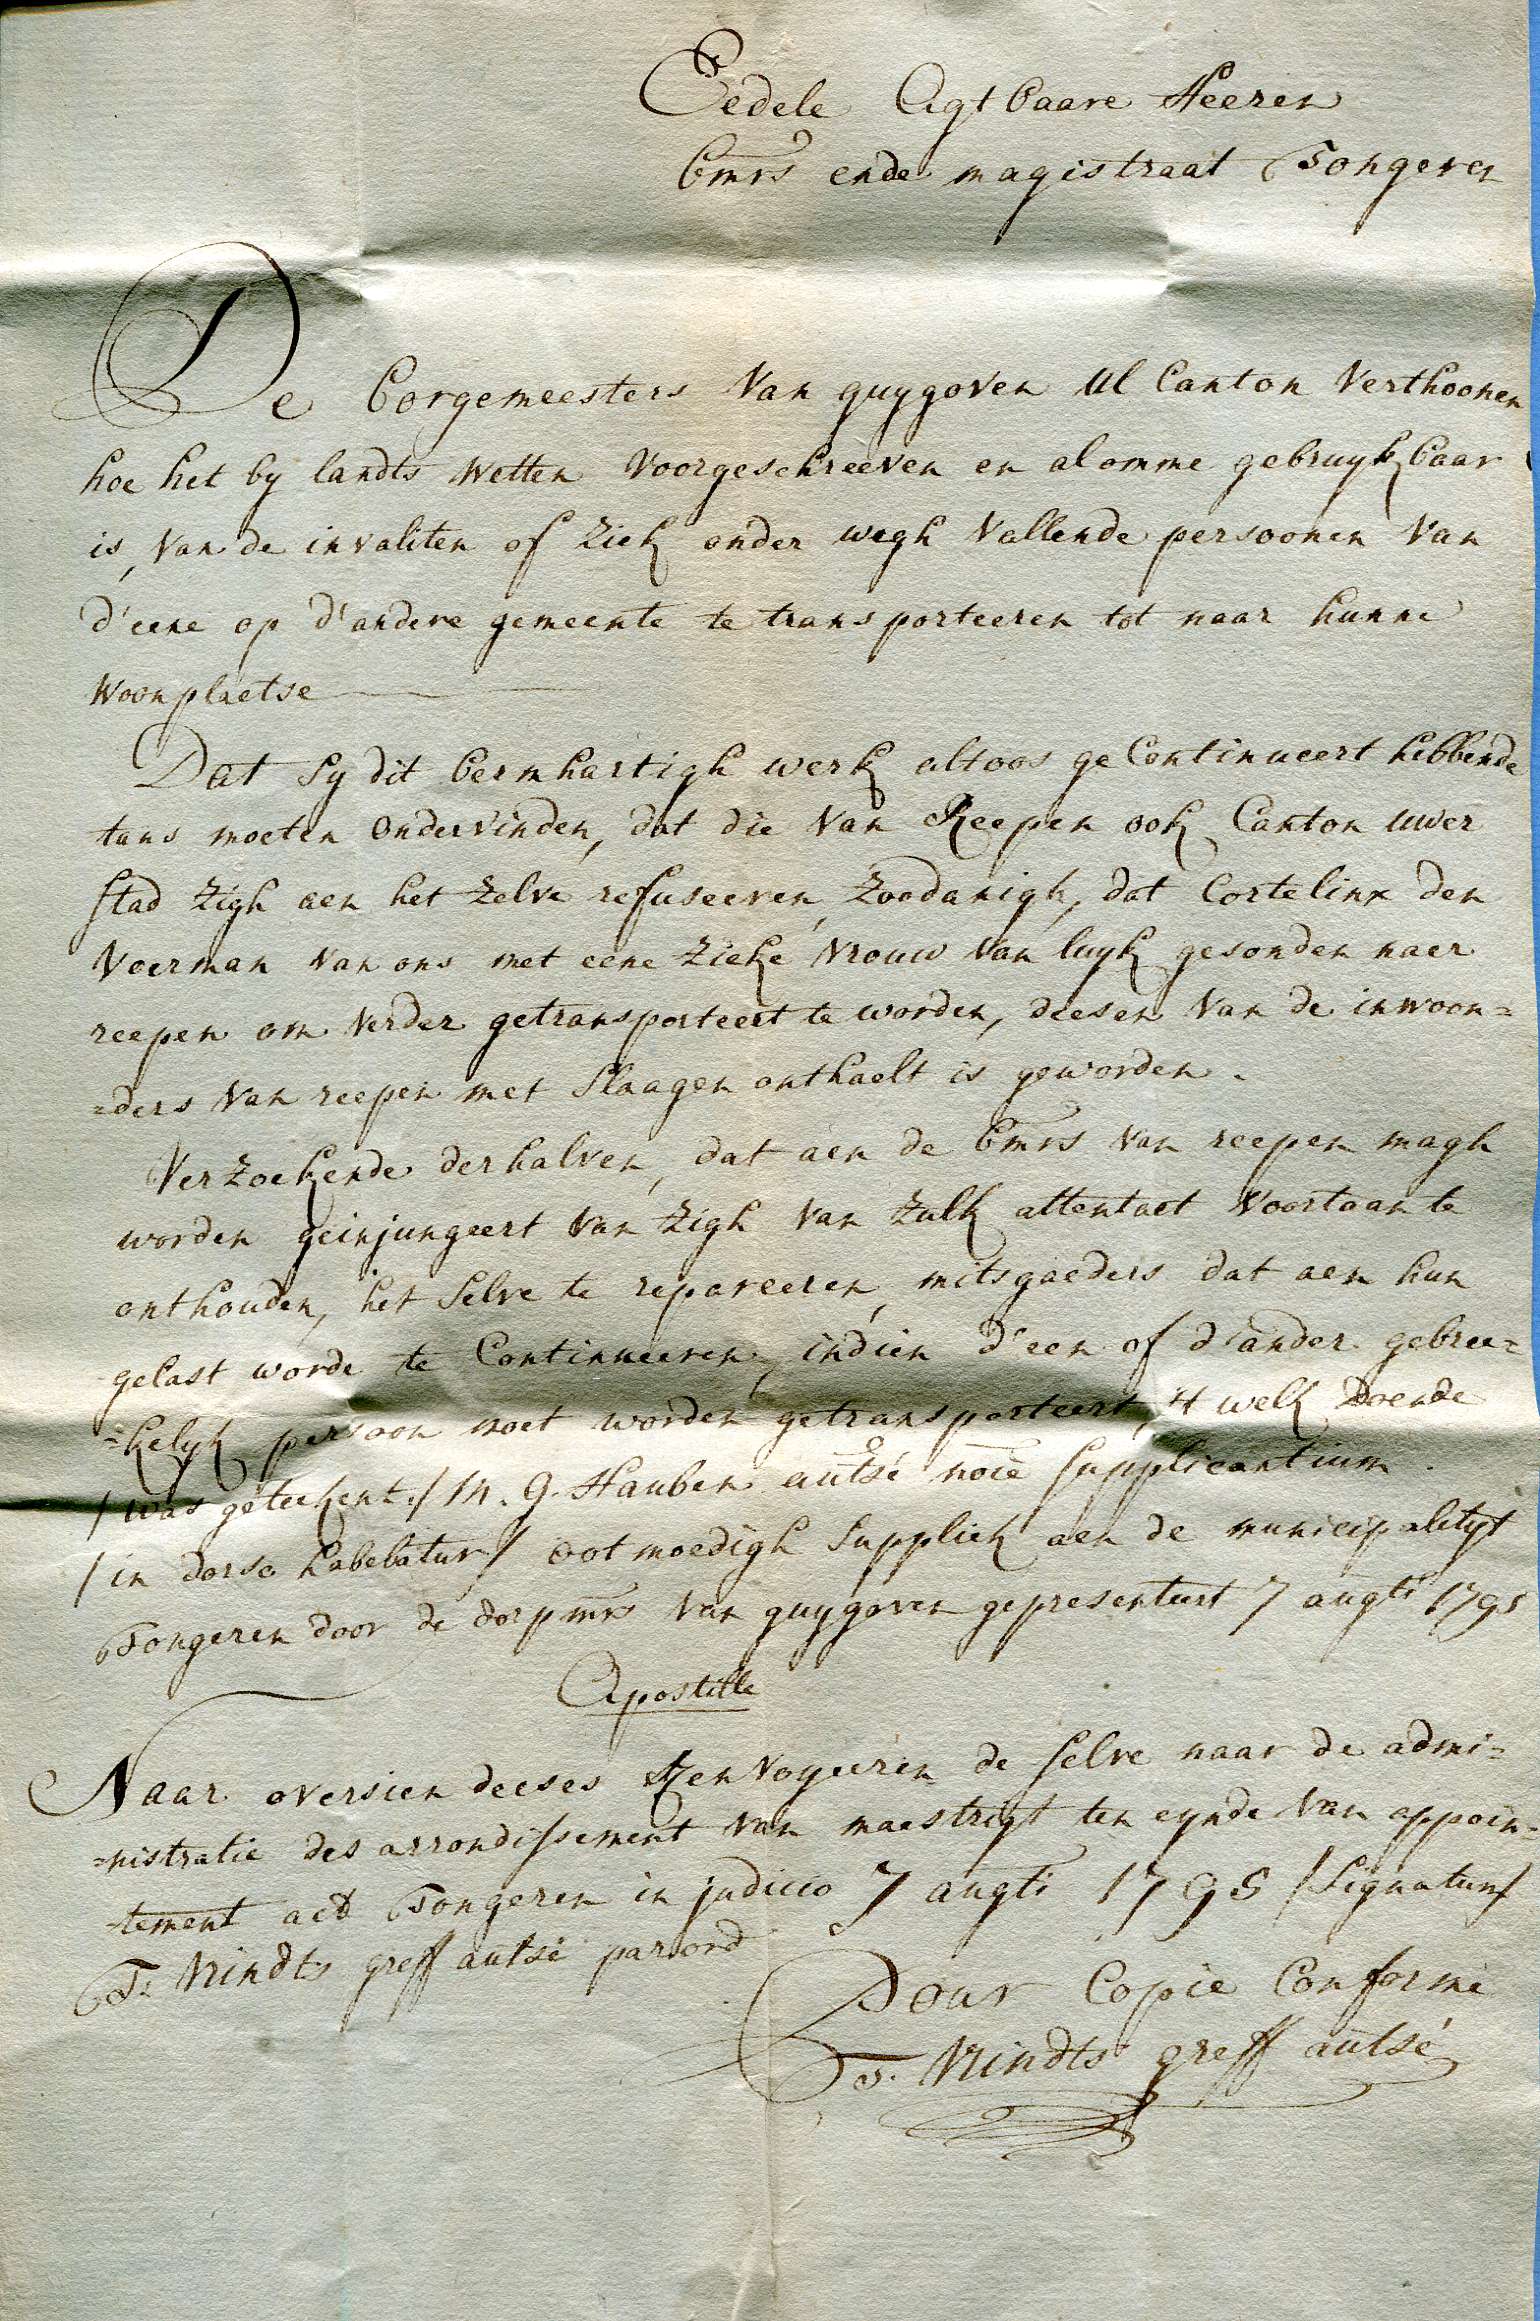 Eedele Agtbaare Heeren
bmrs ende magistraat Tongeren
De borgemeesters van guygoven Ul Canton verthoonen
hoe het by landts wetten voorgeschreeven en alomme gebruykbaar
is, van de invaliten of ziek onder wegh vallende persoonen van
d'eene op d'andere gemeente te transporteeren tot naar hunne
woonplaetse
Dat sy dit bermhartigh werk altoos geContinueert hebbende
tans moeten ondervinden, dat die van Reepen ook Canton uwer
stad zigh aen het zelve refuseeren, zoodanigh, dat Cortelinx den
voerman van ons met eene zieke vrouw van luyk gesonden naer
reepen om verder getransporteert te worden, deesen van de inwoon=
=ders van reepen met slaagen onthaelt is geworden.
Verzoekende derhalven, dat aen de bmrs van reepen magh
worden geinjungeert van zigh van zulk attentaet voortaan te
onthouden, het selve te repareeren, mitsgaeders dat aen hun
gelast worde te Continueeren, indien d'een of d'ander gebree=
=kelyk persoon moet worden getransporteert, 't welk Doende
/was geteekent/ M. G. Hauben autsé noîe supplicantium.
/in dorso habebatur/ ootmoedigh suppliek aen de municipalityt
Tongeren door de dorpmrs van guygoven gepresenteert 7 augti 1795
Apostille
Naar oversien deeses Renvoyeeren de selve naar de admi=
=nistratie des arrondissement van maestrigt ten eynde van appoin=
=tement act Tongeren in judicio 7 augti 1795 /signatum/
T. Vrindts greff autsé par ord
Pour Copie Conforme
T. Vrindts greff autsé